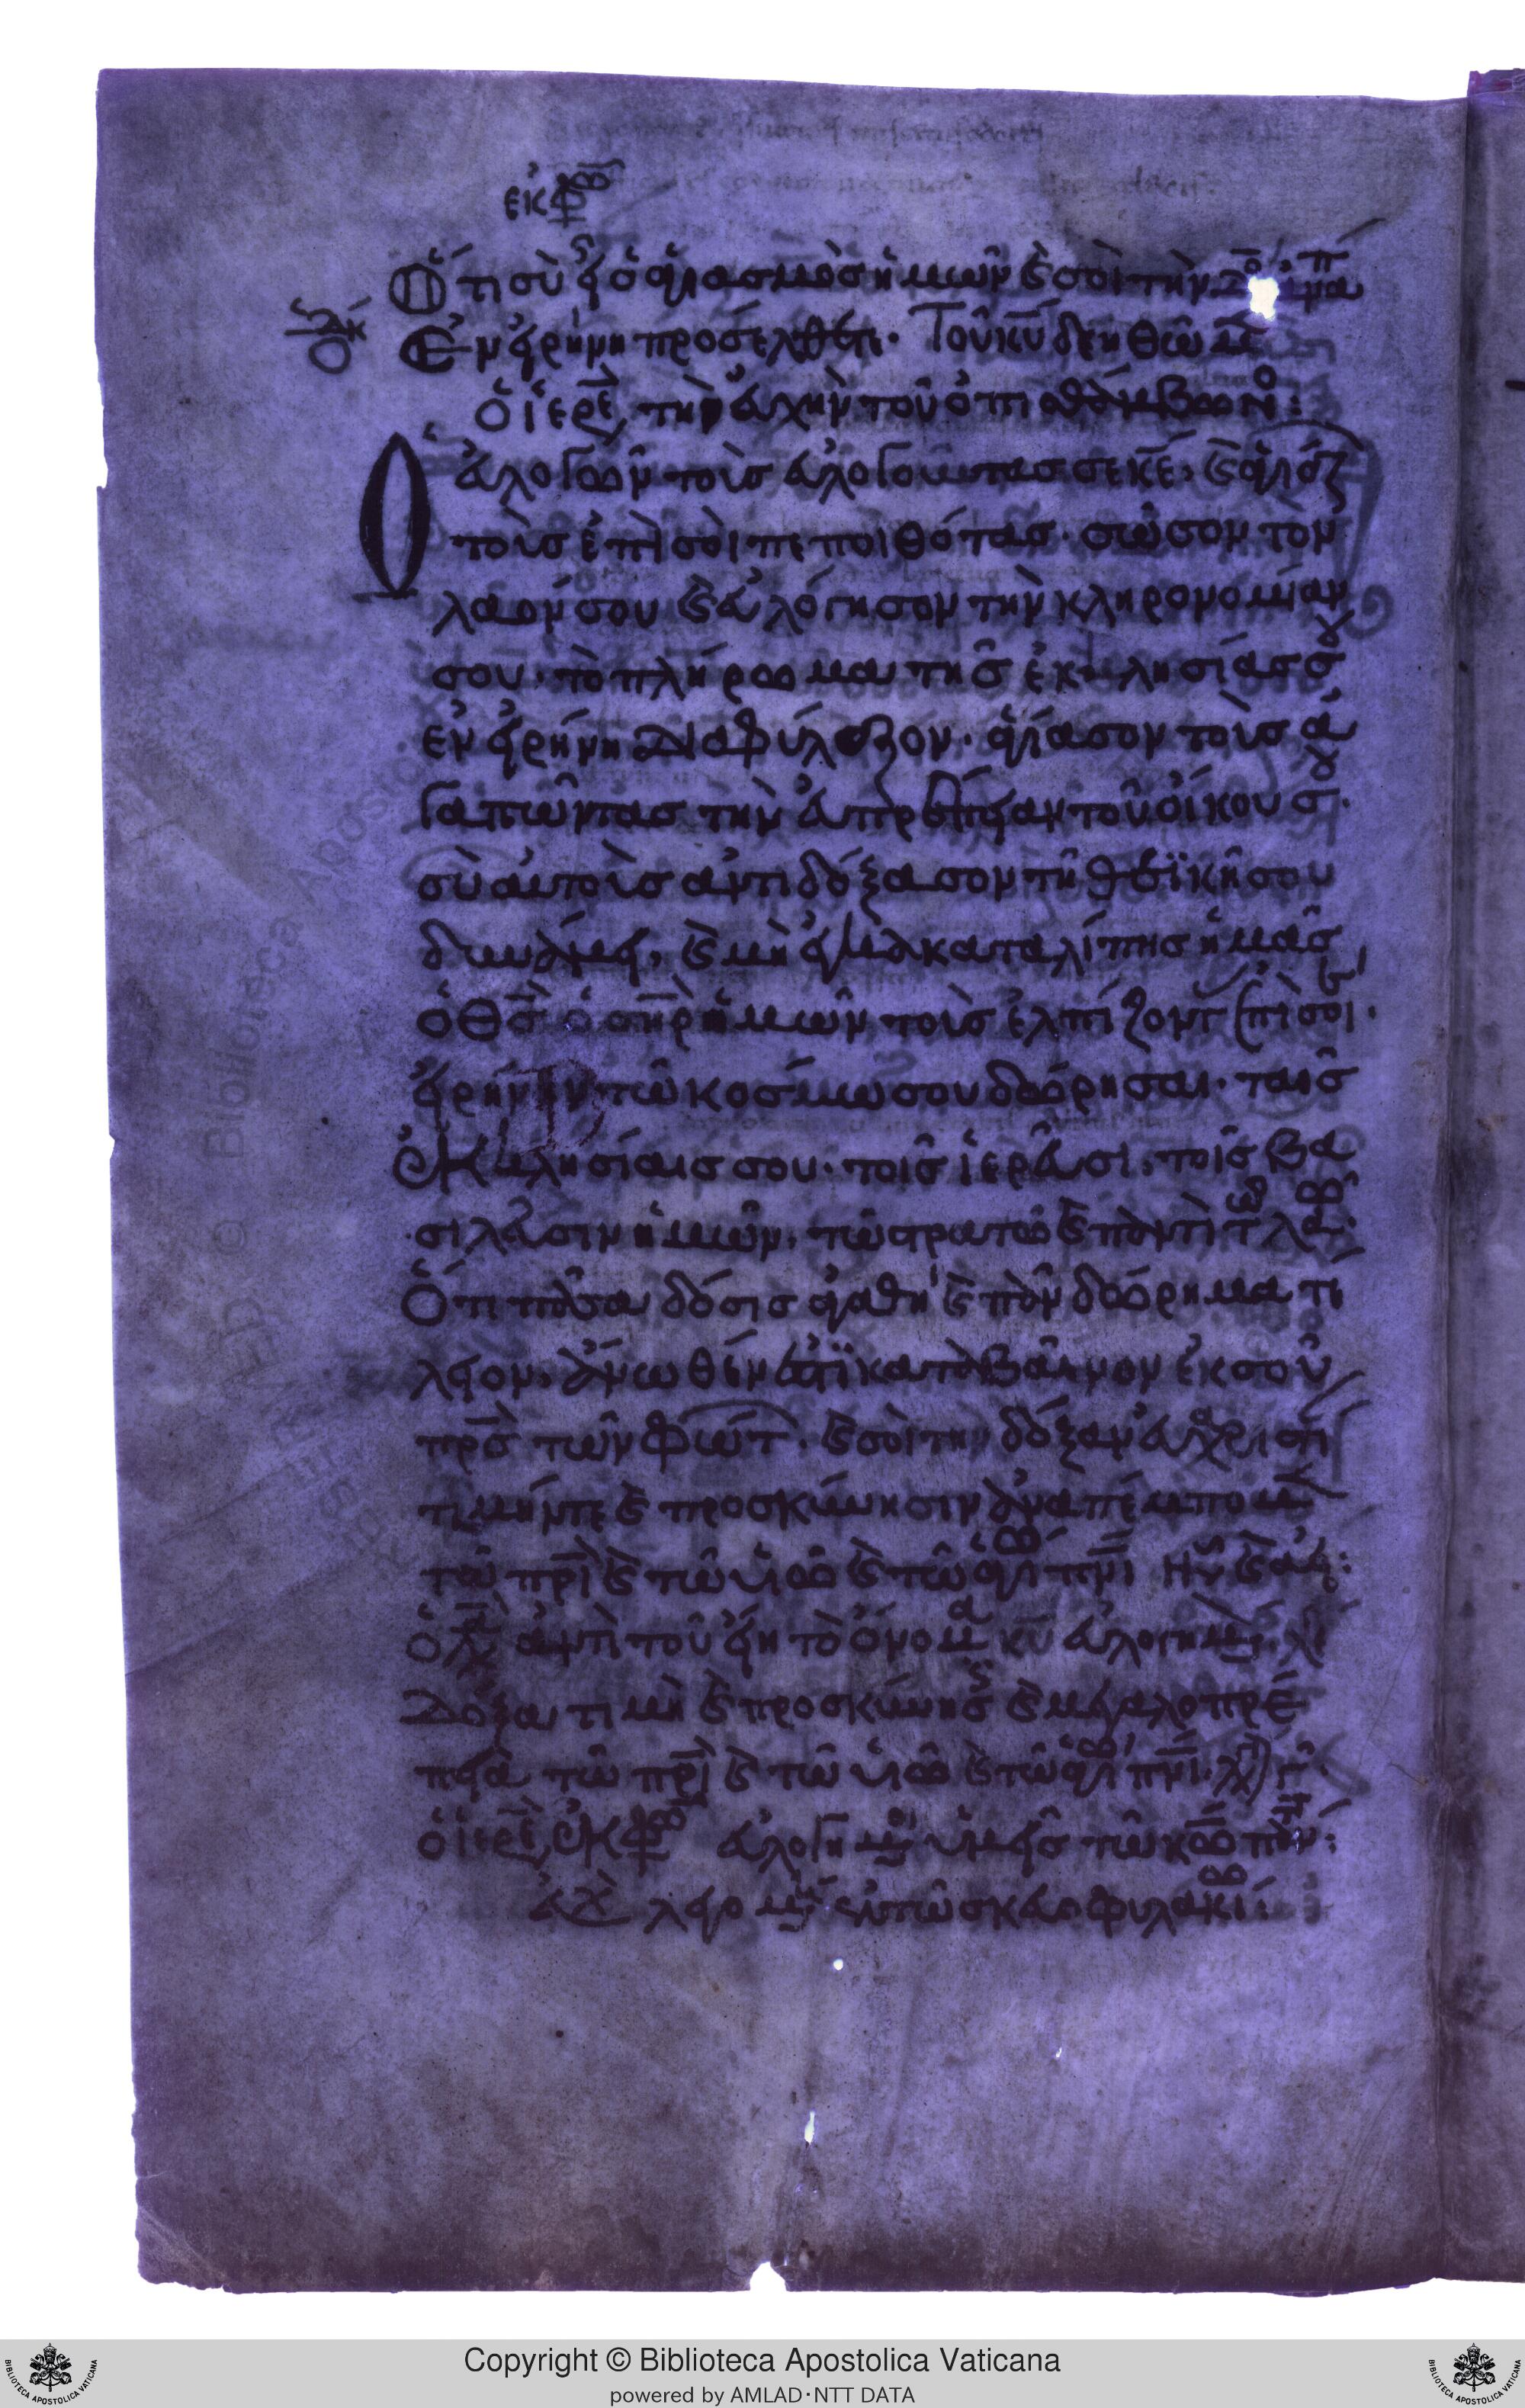 ἐκφω
Ὅτι σὺ εἶ ὁ ἁγιασμὸς ἡμῶν καὶ σοὶ τὴν
Ἐν εἰρήνη προσέλθωμεν. Τοῦ κυ δεηθῶμ
ὁ ἱερε τὴν εὐχὴν τοῦ ὀπισθάμβωνο:
Ὁ εὐλογῶν τοὺς εὐλογοῦντας σε κε, καὶ ἁγιάζ
τοὺς ἐπὶ σοὶ πεποιθότας. σῶσον τὸν
λαόν σου καὶ εὐλόγησον τὴν κληρονομίαν
σου. τὸ πλήρωμα τῆς ἐκκλησίας σου
ἐν εἰρήνη διαφύλαξον. ἁγίασον τοὺς ἀ
γαπῶντας τὴν εὐπρέπειαν τοῦ οἴκου σου.
σὺ αὐτοὺς ἀντιδόξασον τῆ θεϊκῆ σου
δυνάμει, καὶ μὴ ἐγκαταλίπης ἡμᾶς
ὁ θς ὁ σηρ ἡμῶν τοὺς ἐλπίζοντ ἐπὶ σοί.
εἰρήνην τῶ κόσμω σου δώρησαι. ταῖς
ἐκκλησίαις σου. τοῖς ἱερεῦσι, τοῖς βα
σιλεῦσιν ἡμῶν, τῶ στρατῶ καὶ παντὶ τῶ λαῶ.
Ὅτι πᾶσα δόσις ἀγαθὴ καὶ πᾶν δώρημα τέ
λειον, ἄνωθέν ἐστϊ καταβαῖνον ἐκ σοῦ
πρς τῶν φώτ. καὶ σοὶ τὴν δόξαν εὐχαριστί
τιμήν τε καὶ προσκύνησιν ἀναπέμπομ
τῶ πρὶ καὶ τῶ υἱῶ καὶ τῶ ἁγίω πνι νῦν καὶ ἀεὶ:
ὁ χ ἀντὶ τοῦ εἴη τὸ ὄνομα κυ εὐλογημ
Δόξα τιμὴ καὶ προσκύνης καὶ μεγαλοπρέ
πεια τῶ πρὶ καὶ τῶ υἱῶ καὶ τῶ ἁγίω πνι.
ὁ ἱερε ἐκφω εὐλογημ ὑμεῖς τῶ κω
εὐχ λεγομ ἐν τῶ σκευοφυλακίω:
Copyright © Biblioteca Apostolica Vaticana
powered by AMLAD·NTT DATA